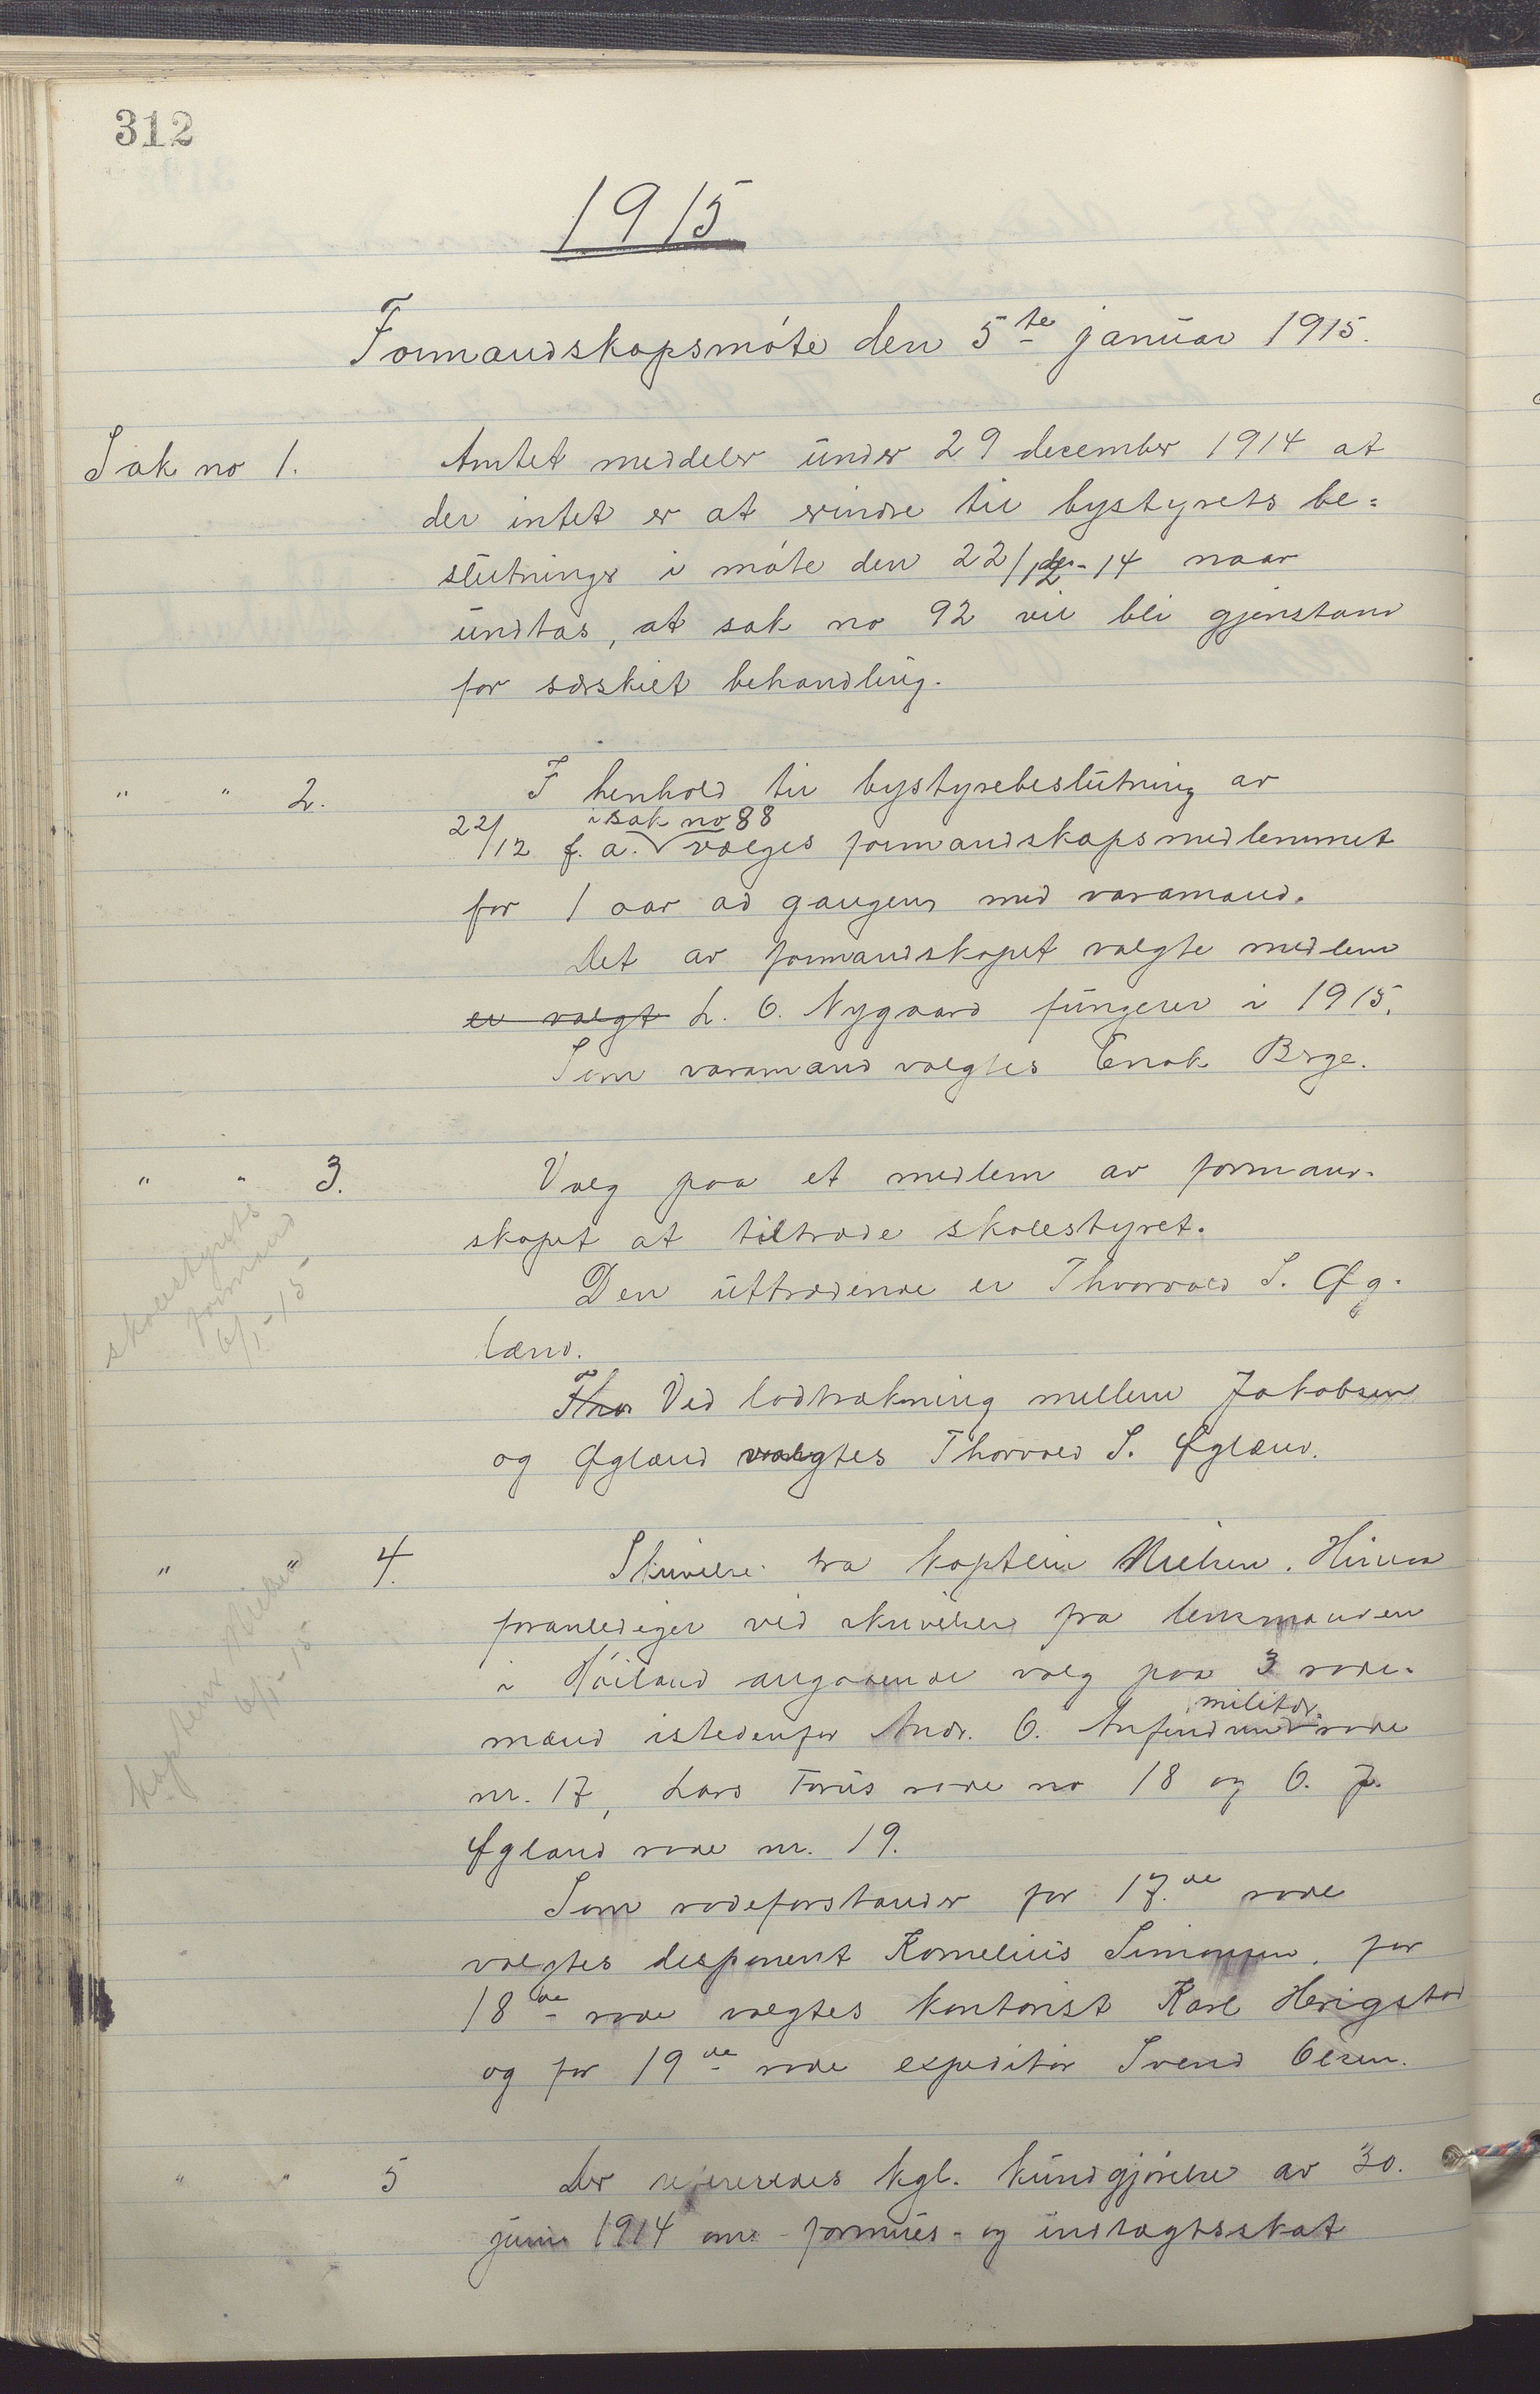 312
1915
Formandskapsmöte den 5te januar 1915.
Sak no 1. Amtet meddeler under 29 december 1914 at
der intet er at erindre til bystyrets be=
slutninger i möte den 22/12-14 naar
undtas, at sak no 92 vil bli gjenstand
for særskilt behandling.
" " 2. I henhold til bystyrebeslutning av
i sak no 88
22/12 f. a. vælges formandskapsmedlemmet
for 1 aar ad gangen med varamand.
Det av formandskapet valgte medlem
er valgt L. O. Nygaard fungerer i 1915.
Som varamand valgtes Enok Brge.
" " 3. Valg paa et medlem av formand-
skapet at tiltræde skolestyret.
Den uttrædende er Thorvald S. Øg-
lænd.
skolestyrets
formand
6/1-15
Thor Ved lodtrækning mellem Jakobsen
og Øglænd valgtes Thorvald S. Øglænd.
" " 4. Skrivelse fra kaptein Nielsen. Hinna
foranlediget ved skrivelse fra lensmanden
i Höiland angaaende valg paa 3 rode-
militær
mænd istedenfor Andr. O. Anfindsen rode
nr. 17, Lars Foss rode no 18 og O. J.
Øgland rode nr. 19.
kaptein Nielsen
6/1-15
Som rodeforstander for 17.de rode
valgtes disponent Kornelius Simonsen, for
18de rode valgtes kontorist Karl Herigstad
og for 19de rode expeditör Svend Olsen.
" " 5 Der refereredes kgl. kundgjörelse av 30.
juni 1914 om formues- og indtægtsskat